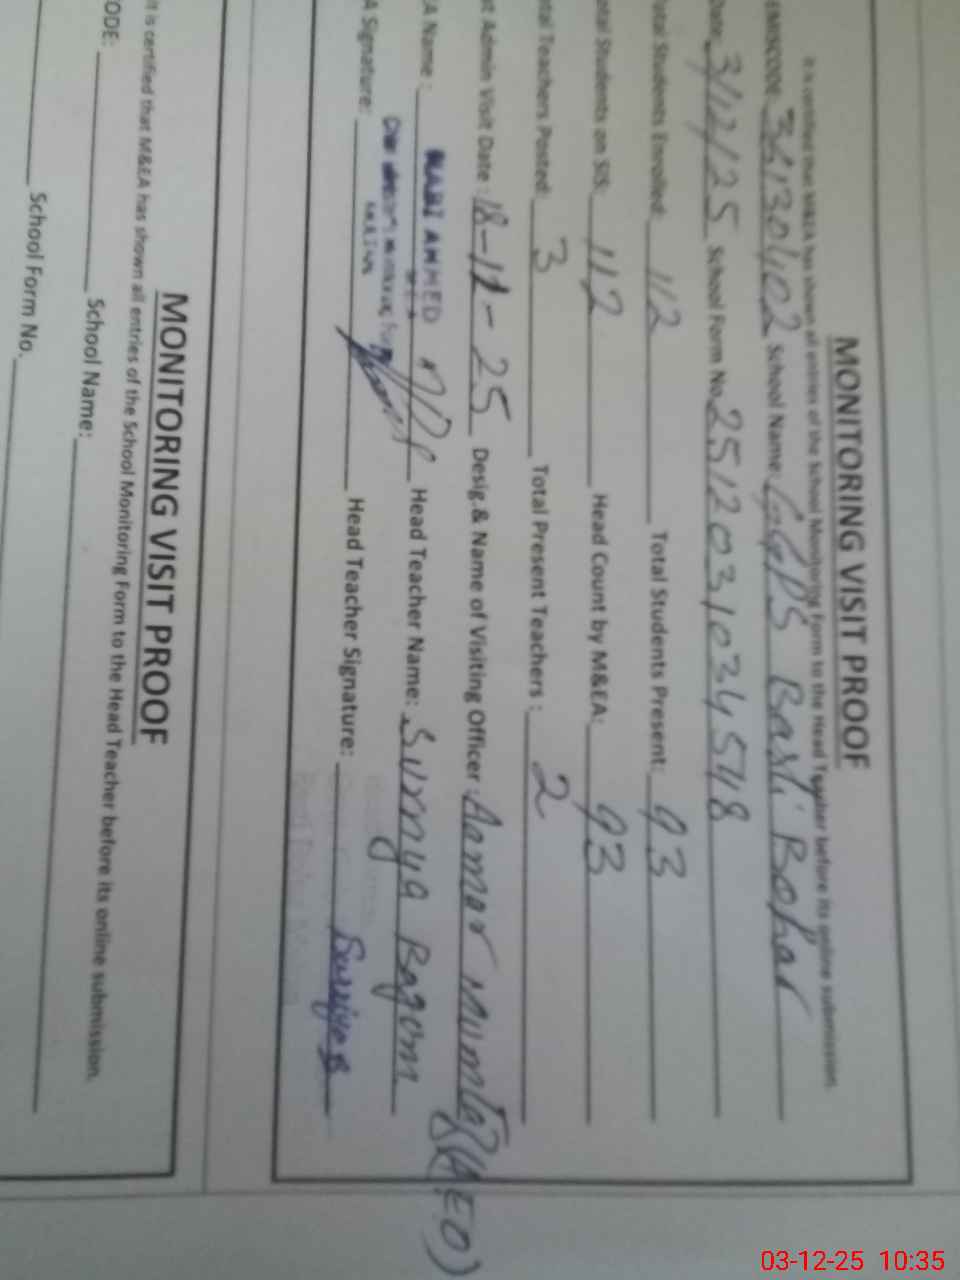 MONITORING VISIT PROOF
It is certified that M&EA has shown all entries of the School Monitoring Form to the Head Teacher before its online submission
EMISCODE 36130402 School Name: GGPS Basti Bohar
Date 3/12/25 School Form No. 2512031034548
otal Students Enrolled: 112 Total Students Present: 93
otal Students on SIS: 112 Head Count by M&EA: 93
tal Teachers Posted: 3 Total Present Teachers : 2
st Admin Visit Date : 18-11-25 Desig.& Name of Visiting Officer : Aamar Mumtaz (AEO)
EA Name : NABI AHMED Head Teacher Name: Surnya Bagom
A Signature: Head Teacher Signature: Surriya B
MONITORING VISIT PROOF
It is certified that M&EA has shown all entries of the School Monitoring Form to the Head Teacher before its online submission.
ODE: School Name:
School Form No.
03-12-25 10:35